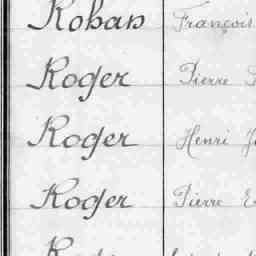 Rohan François
Roger Pierre
Roger Henri
Roger Pierre